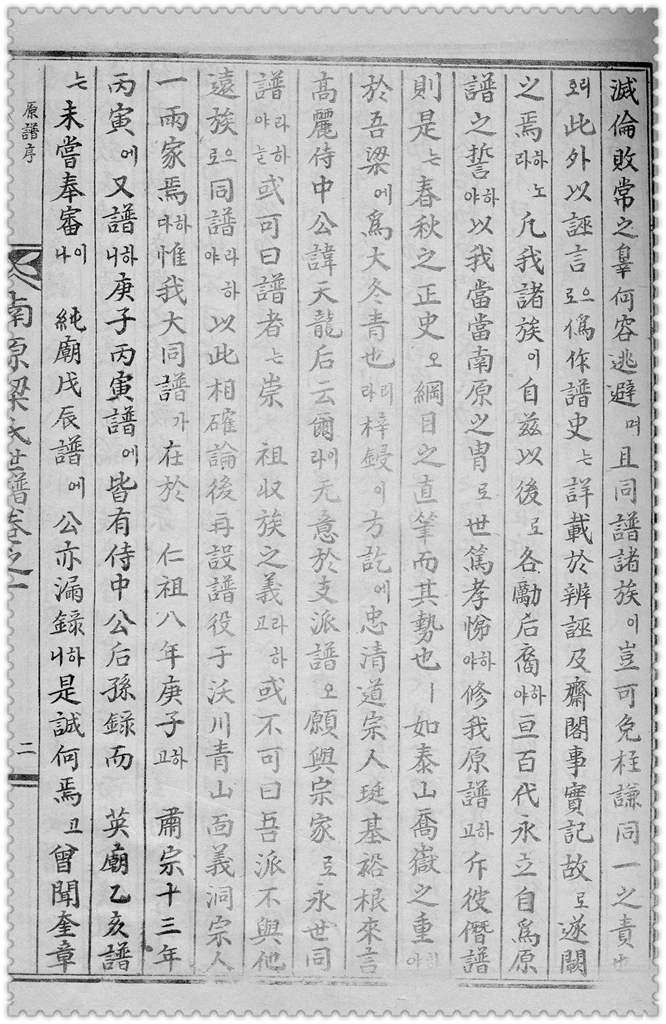 滅倫敗常之辠何容逃避며且同譜諸族이豈可免枉謙同一之責也
호리此外以誣言로으僞作譜史는詳載於辨誣及齋閣事實記故로遂闕
之焉라하노凡我諸族이自玆以後로各勵后裔야하亘百代永立自爲原
譜之誓야하以我當當南原之冑로世篤孝悌야하修我原譜고하斥彼僭譜
則是는春秋之正史오綱目之直筆而其勢也ㅣ如泰山喬嶽之重야하
於吾梁에爲大冬靑也라리梓鋟이方訖에忠清道宗人珽基裕根來言
高麗侍中公諱天龍后云爾라이无意於支派譜오願與宗家로永世同
譜야라늘하或可曰譜者는崇 祖収族之義고라하或不可曰吾派不與他
遠族로으同譜야라하以此相確論後再設譜役于沃川青山面義洞宗人
一兩家焉다하惟我大同譜가在於 仁祖八年庚子고하 肅宗十三年
丙寅에又譜니하庚子丙寅譜에皆有侍中公后孫錄而 英廟乙亥譜
는未嘗奉審나이 純廟戊辰譜에公亦漏錄니하是誠何焉고曾聞奎章
原譜序
南原梁氏世譜卷之一
二